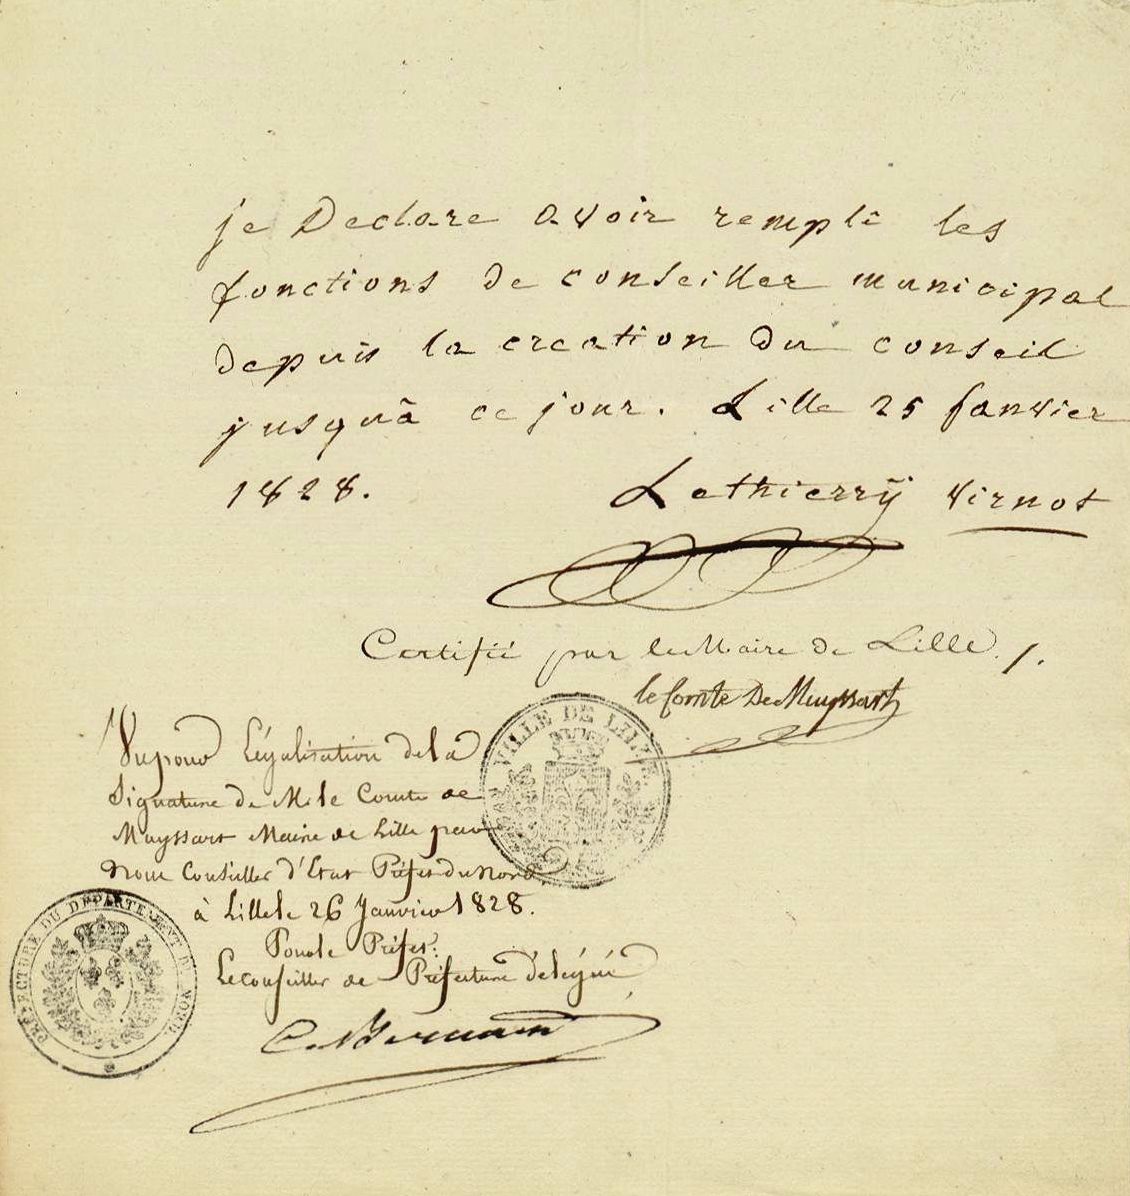 je Declare avoir rempli les
fonctions de conseiller municipal
depuis la creation du conseil
jusquà ce jour. Lille 25 janvier
1828. Lethierrÿ Virnot
Certifié par le Maire de Lille ./.
le Comte De Muyssart
VILLE DE LILLE
Vu pour Légalisation de la
Signature de M. le Comte de
Muyssart Maire de Lille par
Nous Conseiller d'Etat Préfet du Nord
à Lille le 26 Janvier 1828.
Pour le Préfet:
Le conseiller de Préfecture délégué
PREFECTURE DU DEPARTEMENT DU NORD